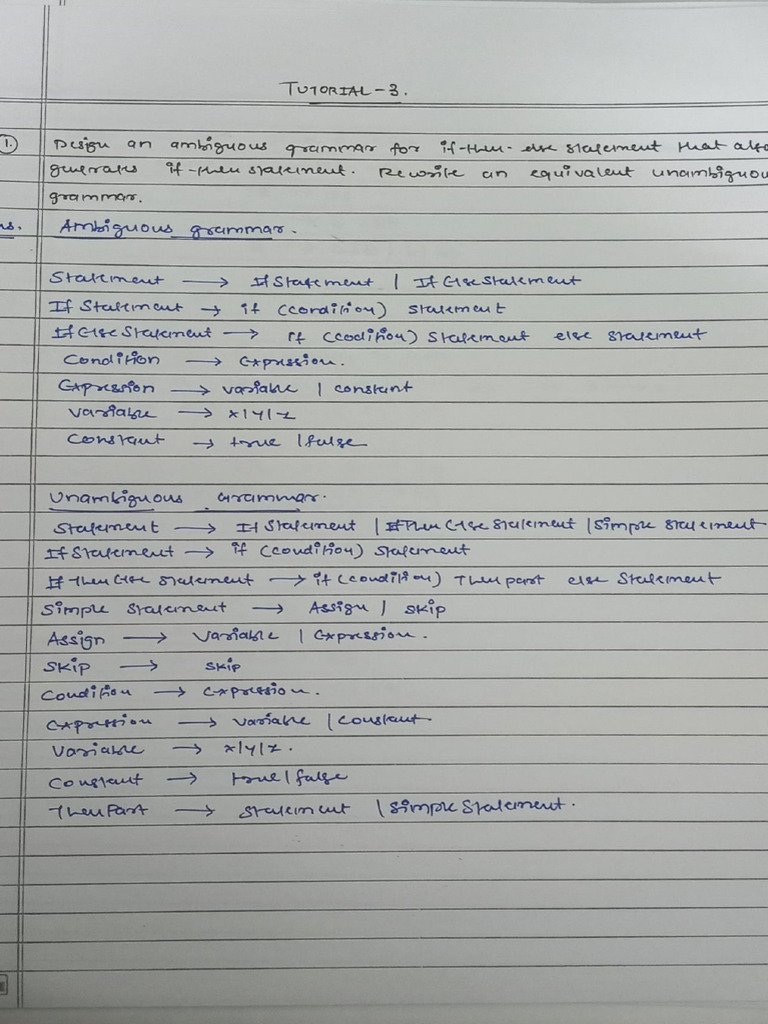 TUTORIAL - 3.
1. Design an ambiguous grammar for if-then-else statement that also
generates if-then statement. Rewrite an equivalent unambiguous
grammar.
ns. Ambiguous grammar.
Statement → IfStatement | IfElseStatement
If Statement → if (condition) statement
IfElseStatement → If (codition) Statement else statement
Condition → Expression.
Expression → variable | constant
Variable → x|y|z
Constant → true | false
Unambiguous Grammar.
Statement → If Statement | IfThenElseStatement | Simple statement
IfStatement → if (condition) statement
If Then Else statement → if (condition) Thenpart else Statement
Simple statement → Assign | skip
Assign → Variable | Expression.
Skip → skip
Condition → Expression.
Expression → variable | constant.
Variable → x|y|z.
Constant → true | false
ThenPart → statement | SimpleStatement.